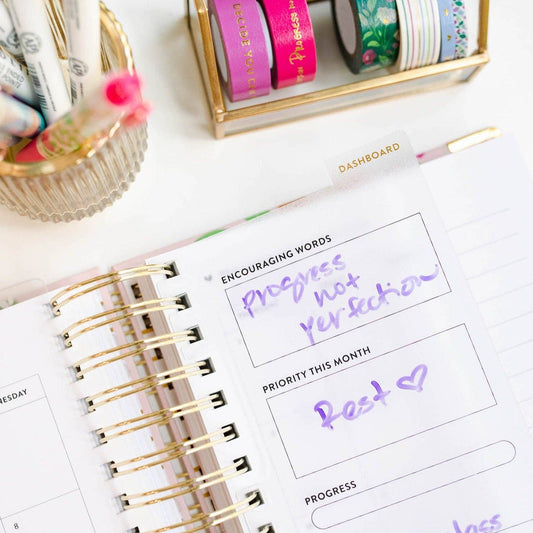 PROGRESS
DASHBOARD
ENCOURAGING WORDS
progress
not
perfection
PRIORITY THIS MONTH
Rest
PROGRESS
NESDAY
8